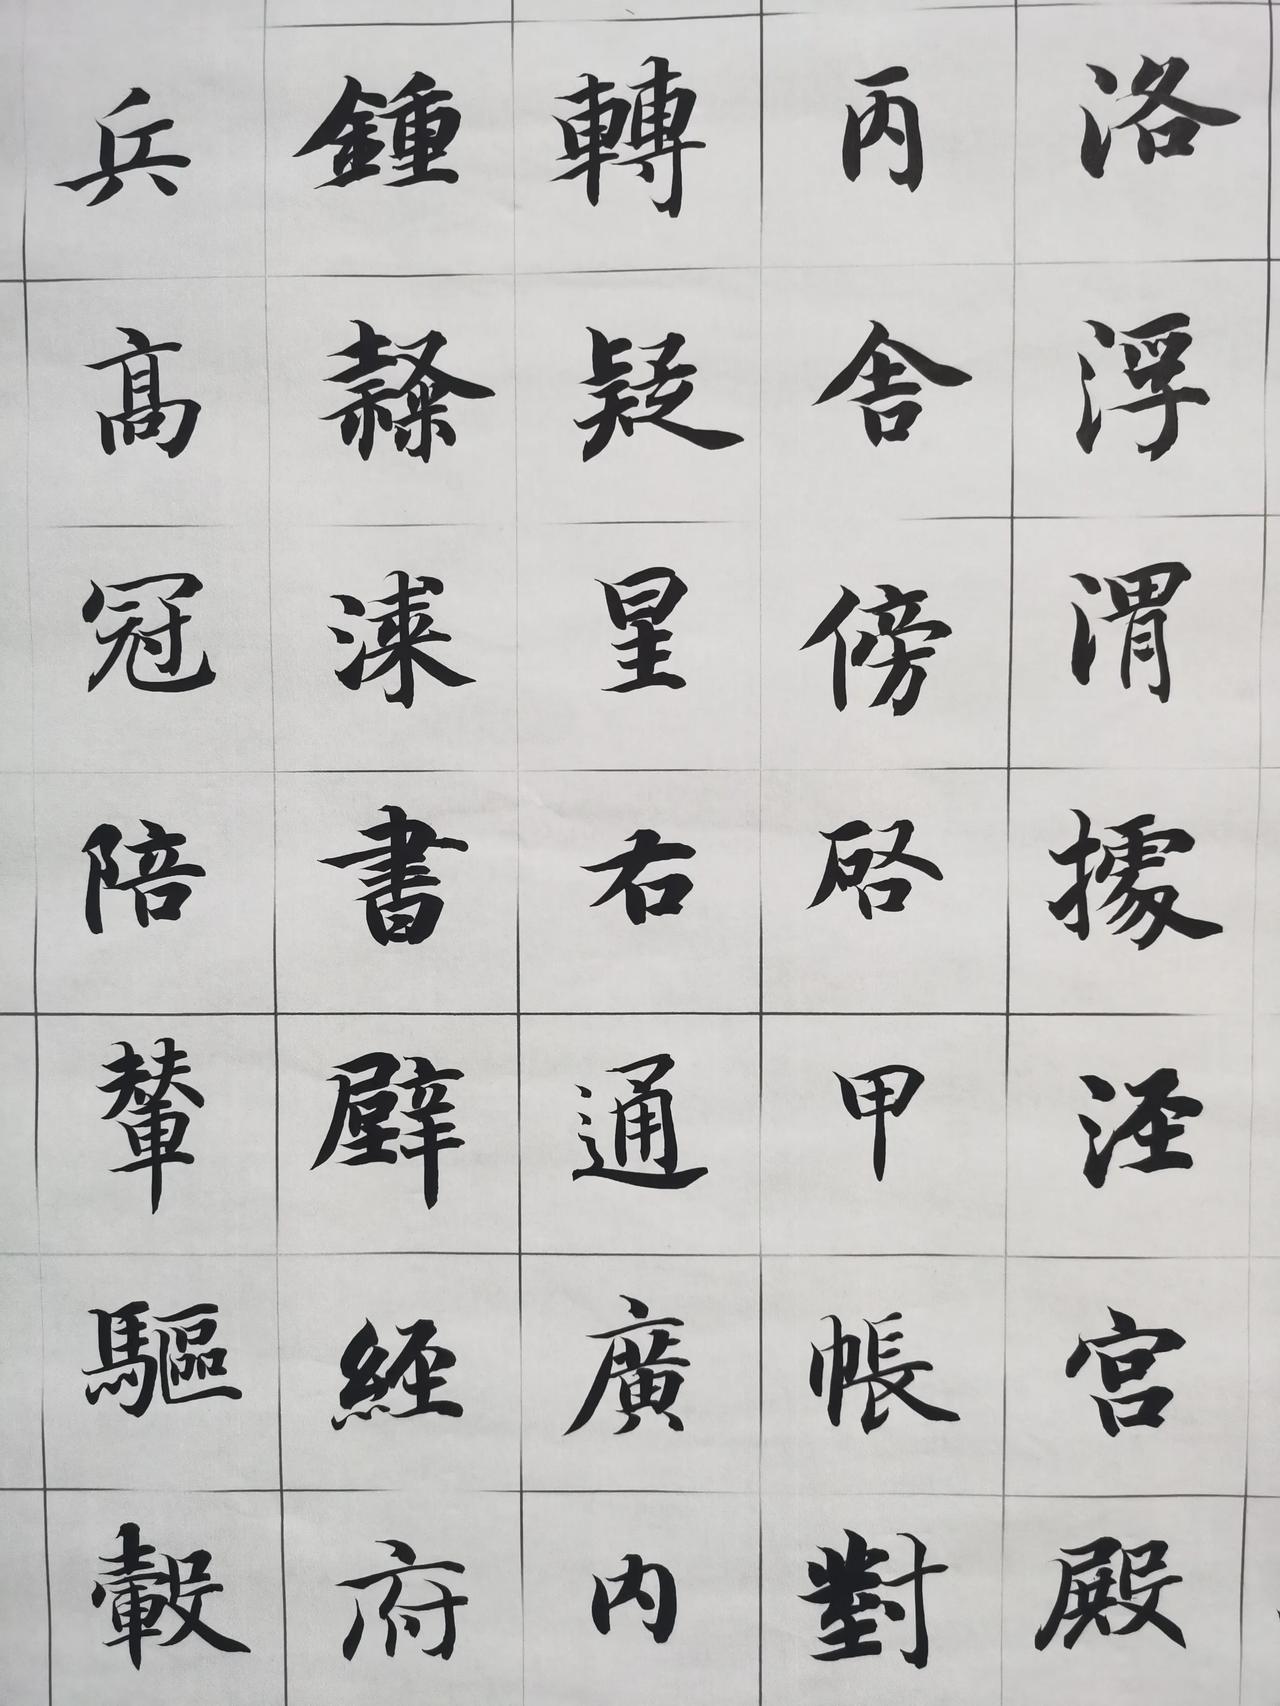 洛浮渭據涇宮殿
丙舍傍啓甲帳對
轉疑星右通廣內
鍾隸漆書壁經府
兵高冠陪輦驅轂